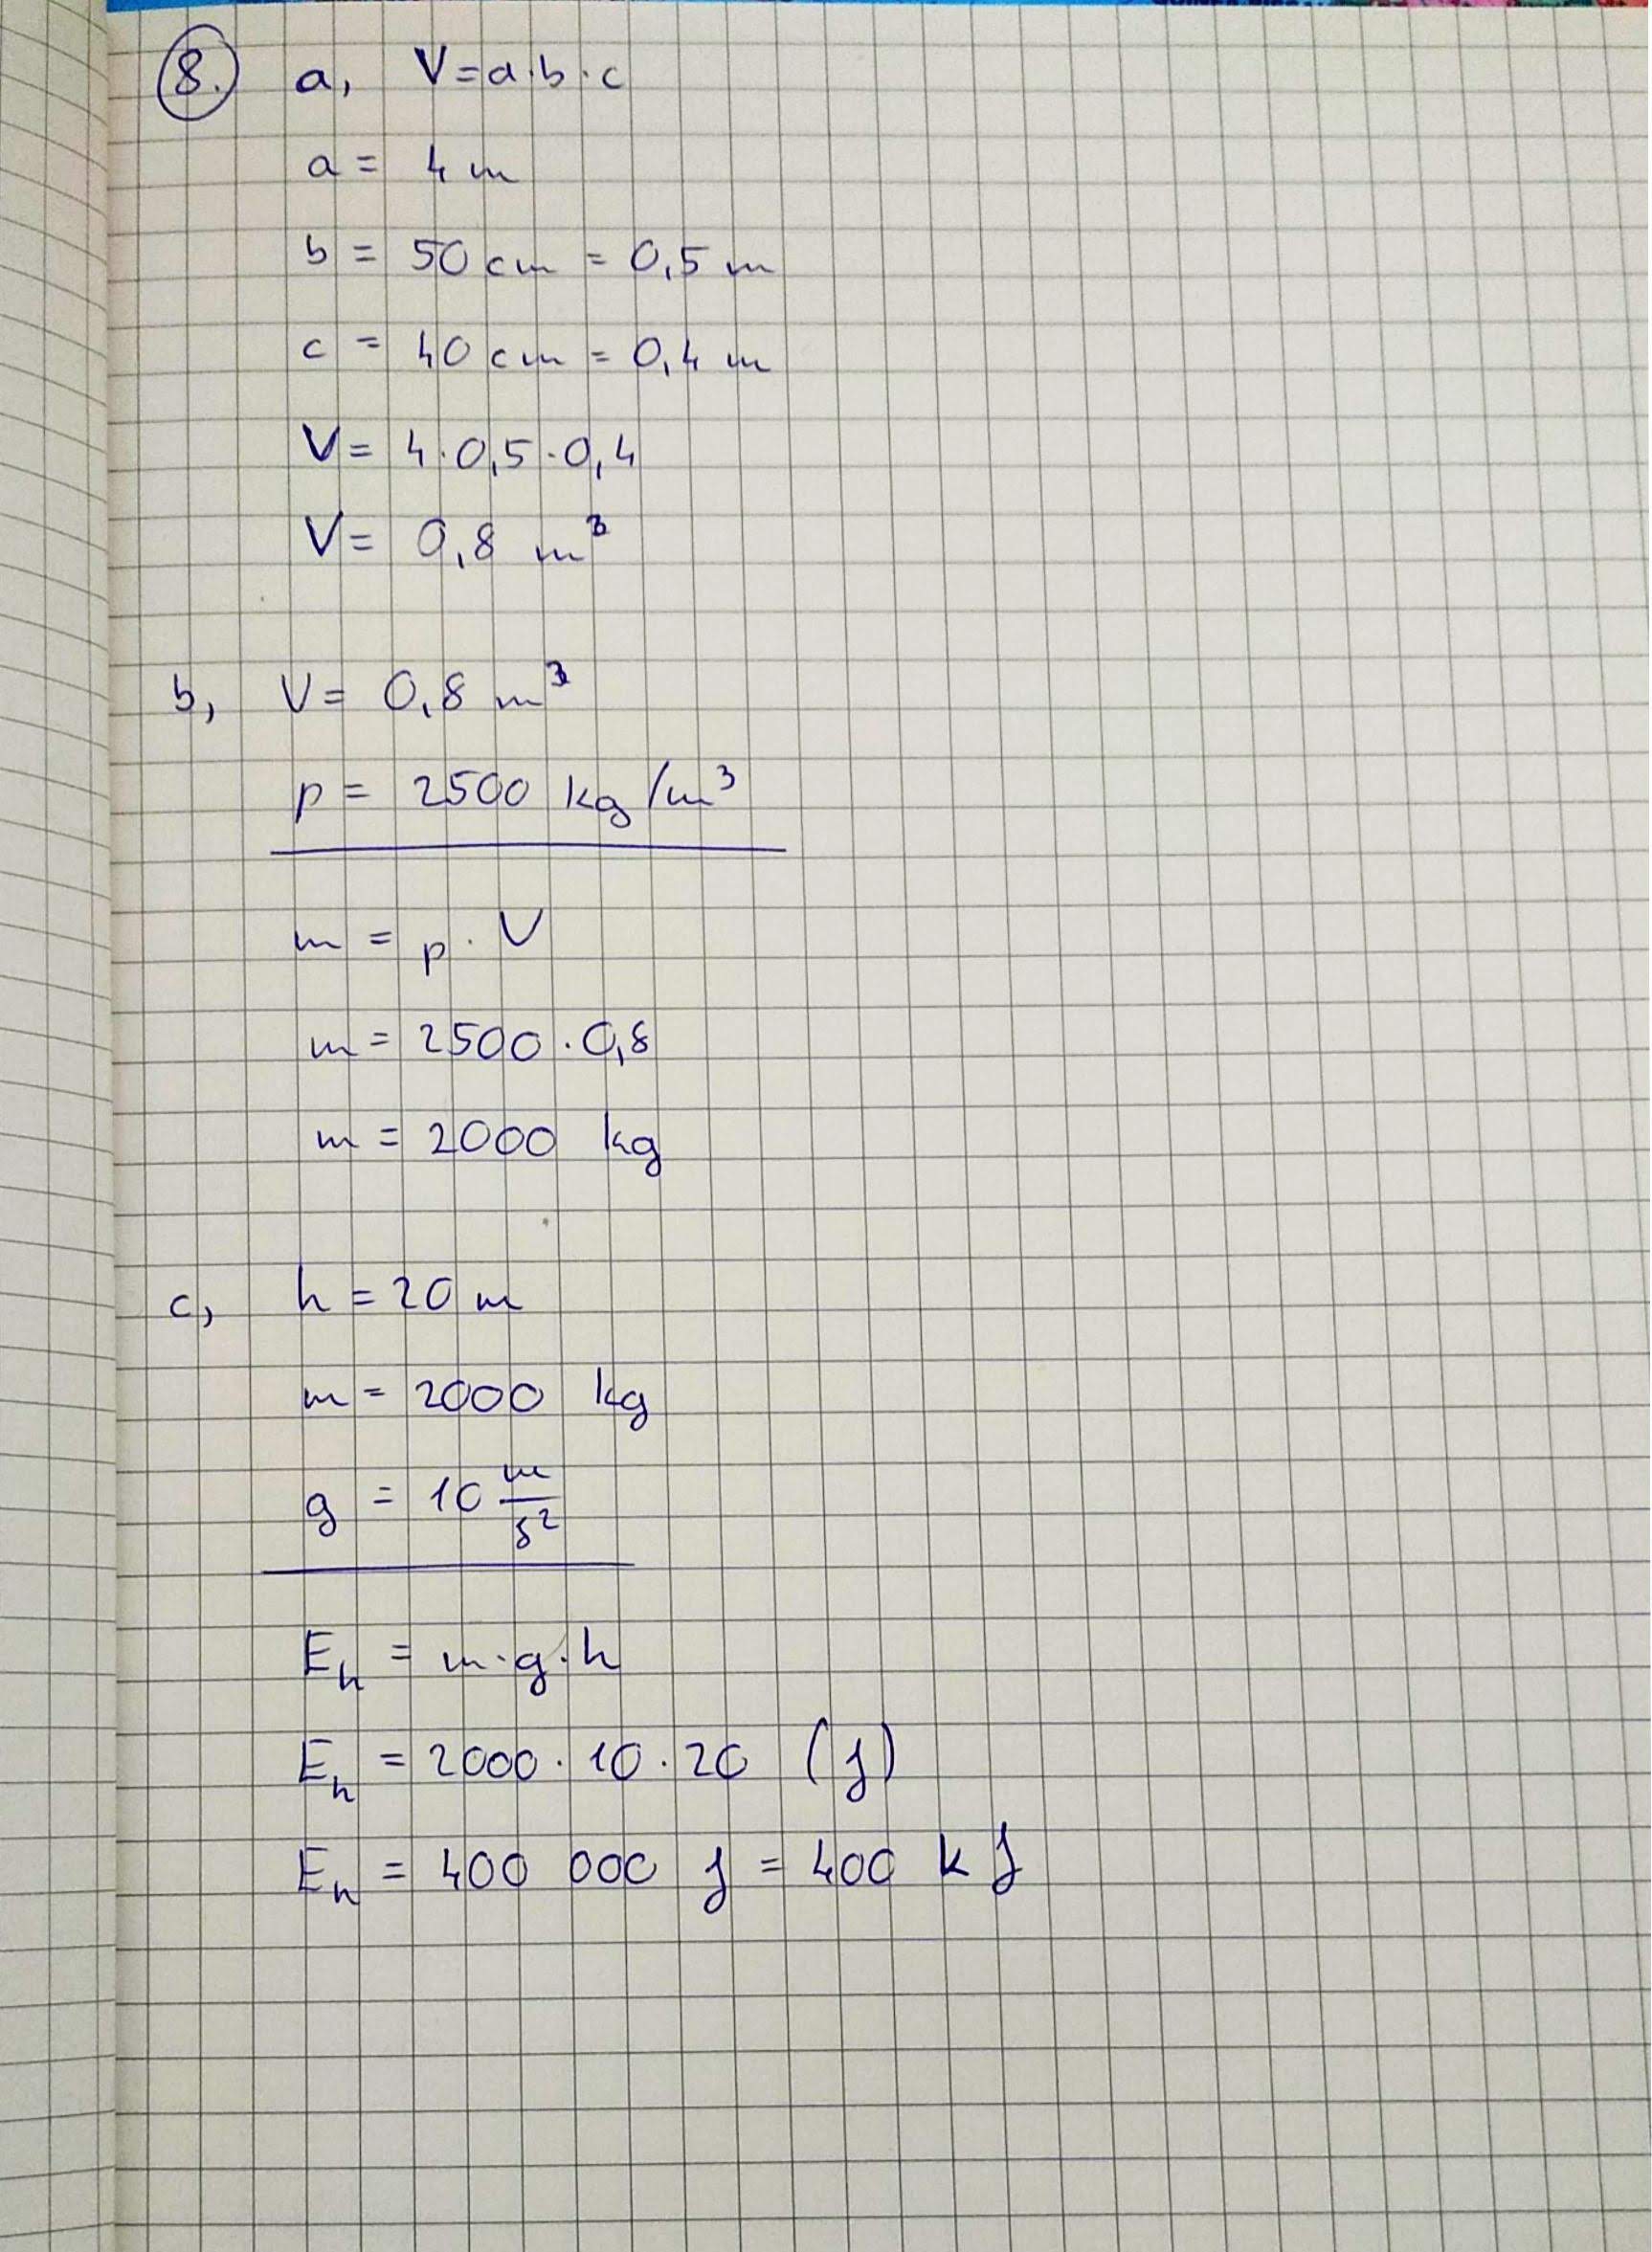 8. a, V = a·b·c
a = 4 m
b = 50 cm = 0,5 m
c = 40 cm = 0,4 m
V = 4·0,5·0,4
V = 0,8 m³
b, V = 0,8 m³
p = 2500 kg/m³
m = p · V
m = 2500 · 0,8
m = 2000 kg
c, h = 20 m
m = 2000 kg
g = 10 m/s²
Eₕ = m·g·h
Eₕ = 2000 · 10 · 20 (J)
Eₕ = 400 000 J = 400 kJ